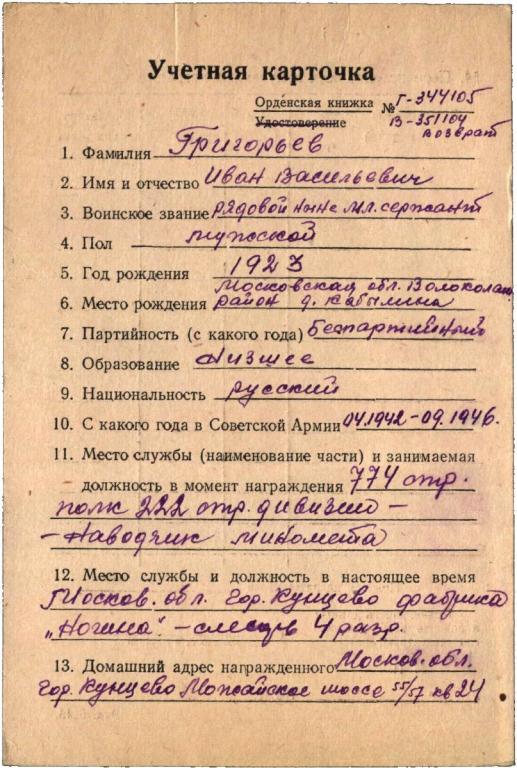 Учетная карточка
Орденская книжка № Г-344105
Удостоверение В-351104
возврат
1. Фамилия Григорьев
2. Имя и отчество Иван Васильевич
3. Воинское звание рядовой ныне мл. сержант
4. Пол мужской
5. Год рождения 1923
Московская обл. Волоколам.
6. Место рождения район д. Кабылина
7. Партийность (с какого года) Беспартийный
8. Образование Низшее
9. Национальность русский
10. С какого года в Советской Армии 04.1942-09.1946.
11. Место службы (наименование части) и занимаемая
должность в момент награждения 774 стр.
полк 222 стр. дивизии –
– Наводчик миномета
12. Место службы и должность в настоящее время
Москов. обл. гор. Кунцево фабрика
„Ногина" – слесарь 4 разр.
13. Домашний адрес награжденного Москов. обл.
гор. Кунцево Можайское шоссе 55/57 кв 24